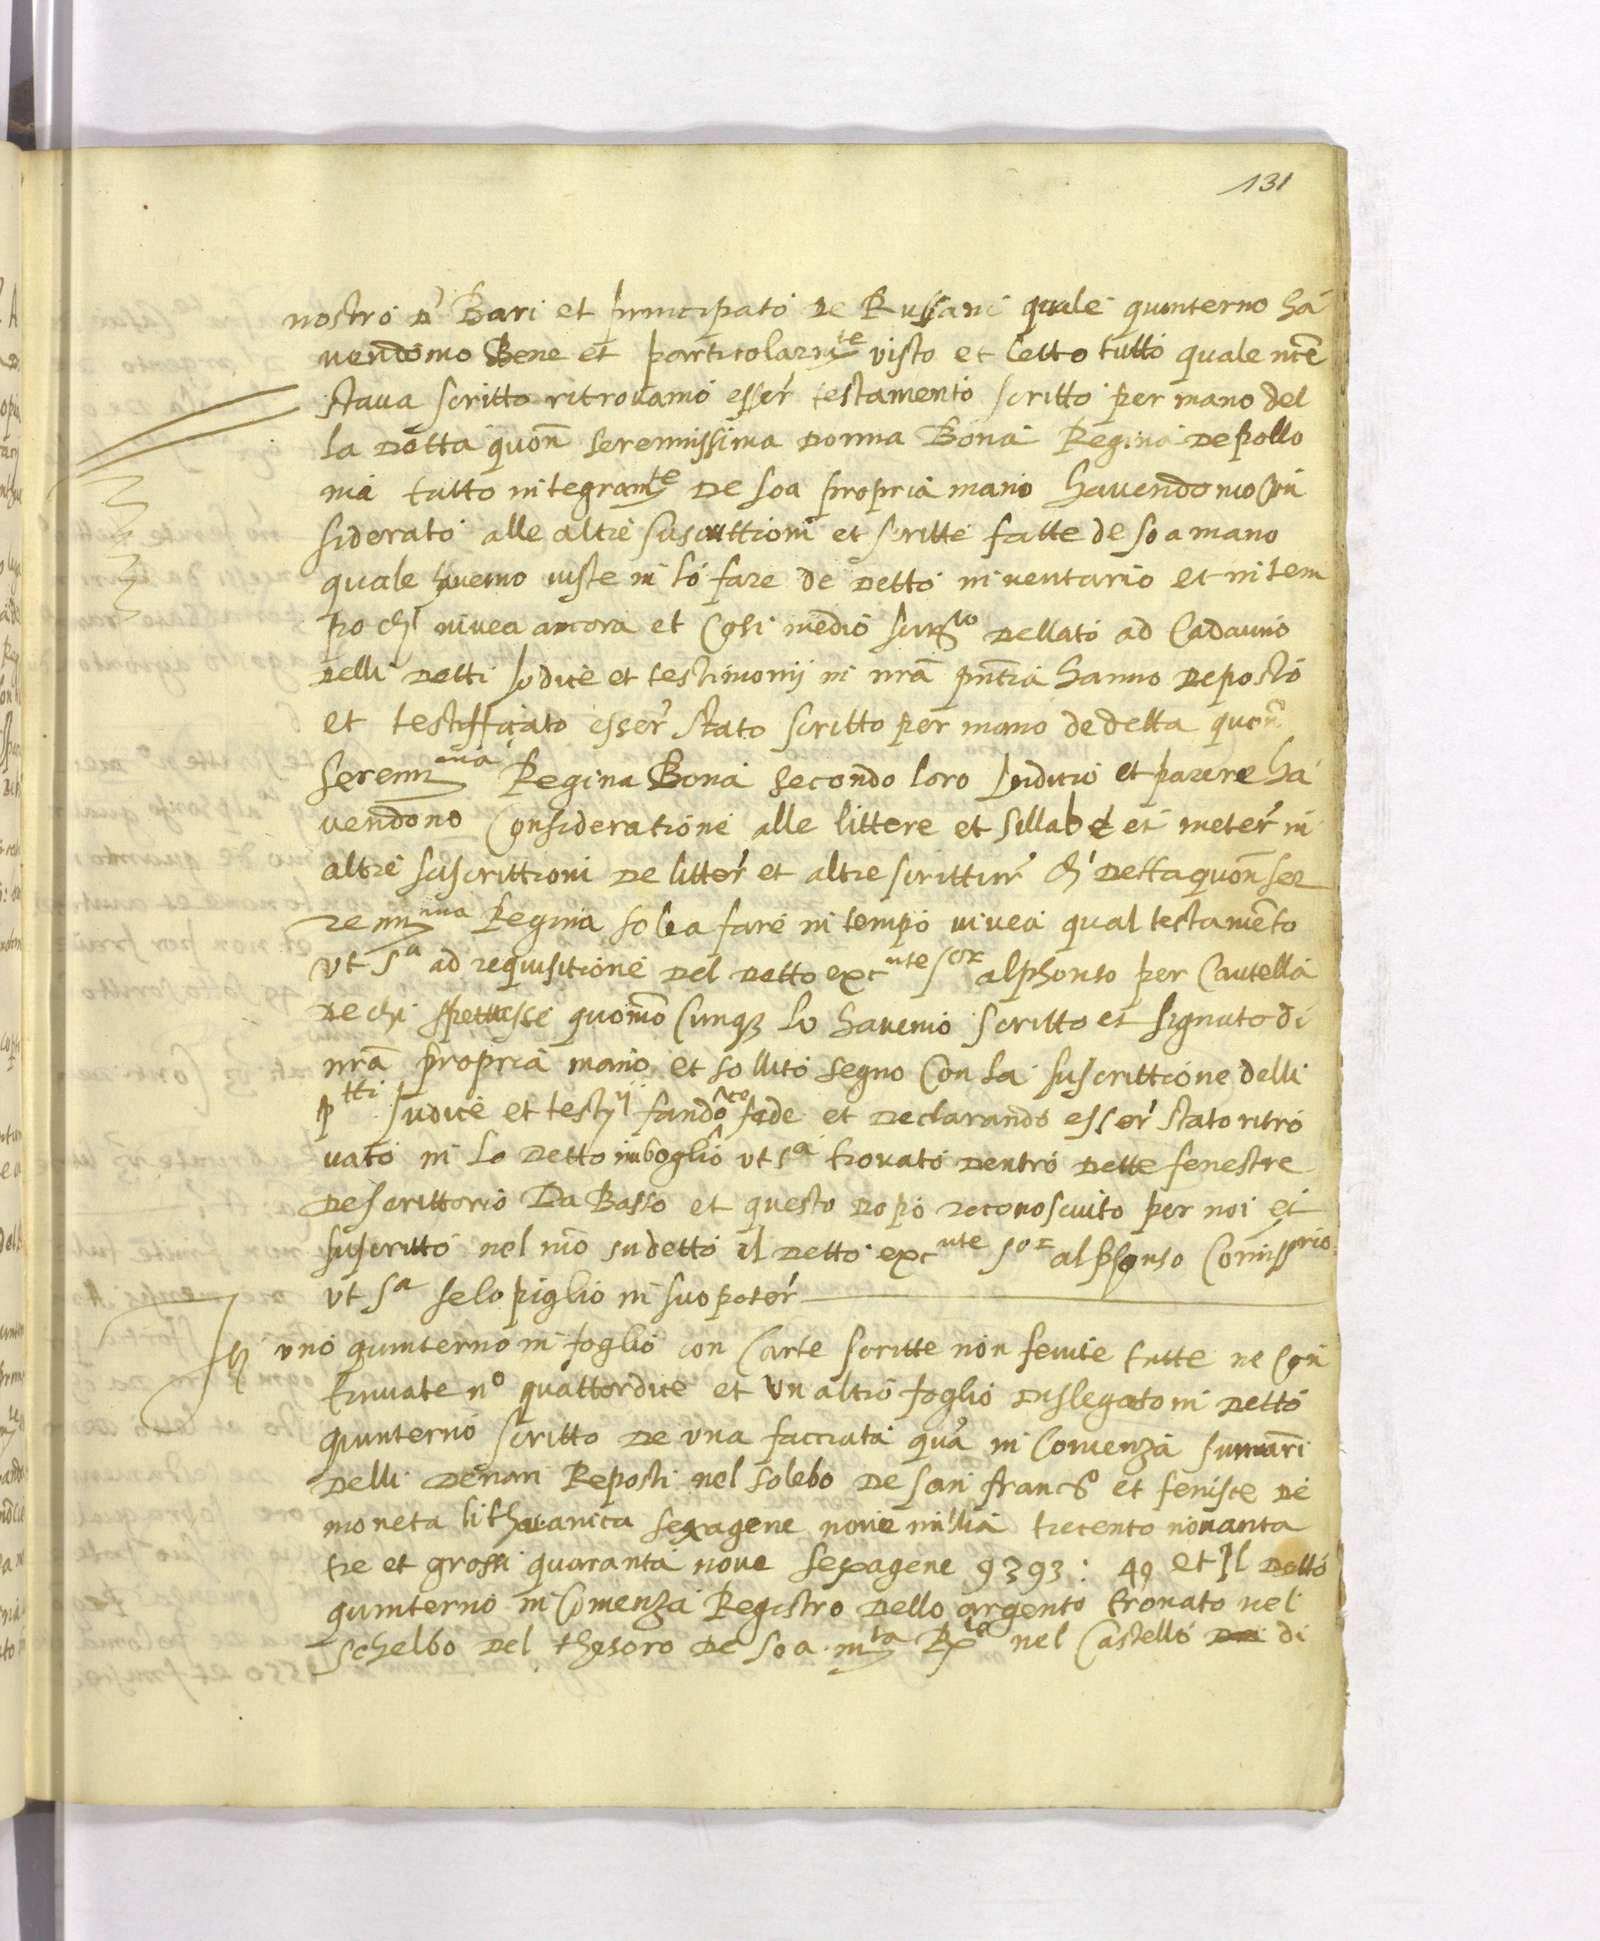 131
nostro d' Bari et principato de Russani quale quinterno ha
vendomo Bene et particolarmte visto et letto tutto quale
stava scritto ritrovamo esser testamento scritto per mano del
la detta quon serennissima donna Bona Regina de pollo
nia tutto integramte de soa propria mano havendomo Con
siderato alle altre suscrittioni et scritte fatte de soa mano
quale havemo viste in lo fare de detto inventario et in tem
po ch' vivea ancora et Cosi medio dellato ad Cadauno
delli detti Judice et testimonij in nrã pñtia hanno deposto
et testifficato esser stato scritto per mano de detta quon
serenma Regina Bona secondo loro Juditio et parere ha
vendono Consideratione alle littere et sillabe et meter in
altre suscrittioni de litter et altre scrittur ch' detta quon ser
renma Regina solea fare in tempo vivea qual testamento
ut sa ad requisitione del detto excnte sor alphonso per Cautella
de chi spettasse quomõ Cunqz lo havemo scritto et signato di
nrã propria mano et sollito segno Con la suscrittione delli
ptti Judice et testij fando fede et declarando esser stato ritro
vato in lo detto imboglio ut sa trovato dentro dette fenestre
de scrittorio Da Basso et questo dopo reconoscuito per noi et
suscritto nel mõ sudetto il detto excnte sor alphonso Comissrio
ut sa se lo piglio in suo poter
It uno quinterno in foglio con Carte scritte non fenite tutte ne Con
tinuate no quattordice et un altro foglio dislegato in detto
quinterno scritto de una facciata qua in Comenza summari
delli denari Reposti nel solebo de san francco et fenisce de
moneta lithuanica sexagene nove millia trecento novanta
tre et grossi quaranta nove sexagene 9393: 49 et Il detto
quinterno in Comenza Registro dello argento trovato nel
schelbo del thesoro de soa mta Rle nel Castello di